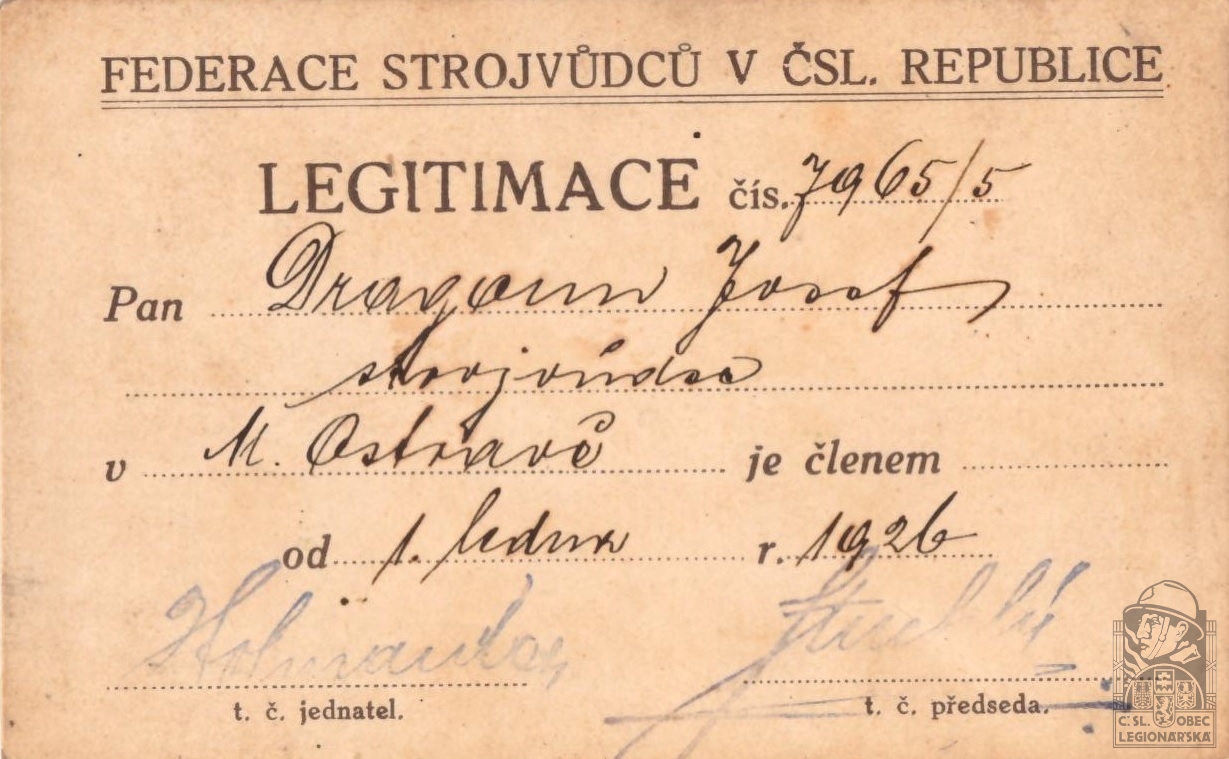 FEDERACE STROJVŮDCŮ V ČSL. REPUBLICE
LEGITIMACE čís. 7965/5
Pan Dragoun Josef
strojvůdce
v M. Ostravě je členem
od 1. ledna r. 1926
t. č. jednatel. t. č. předseda.
Č.SL. OBEC
LEGIONÁŘSKÁ